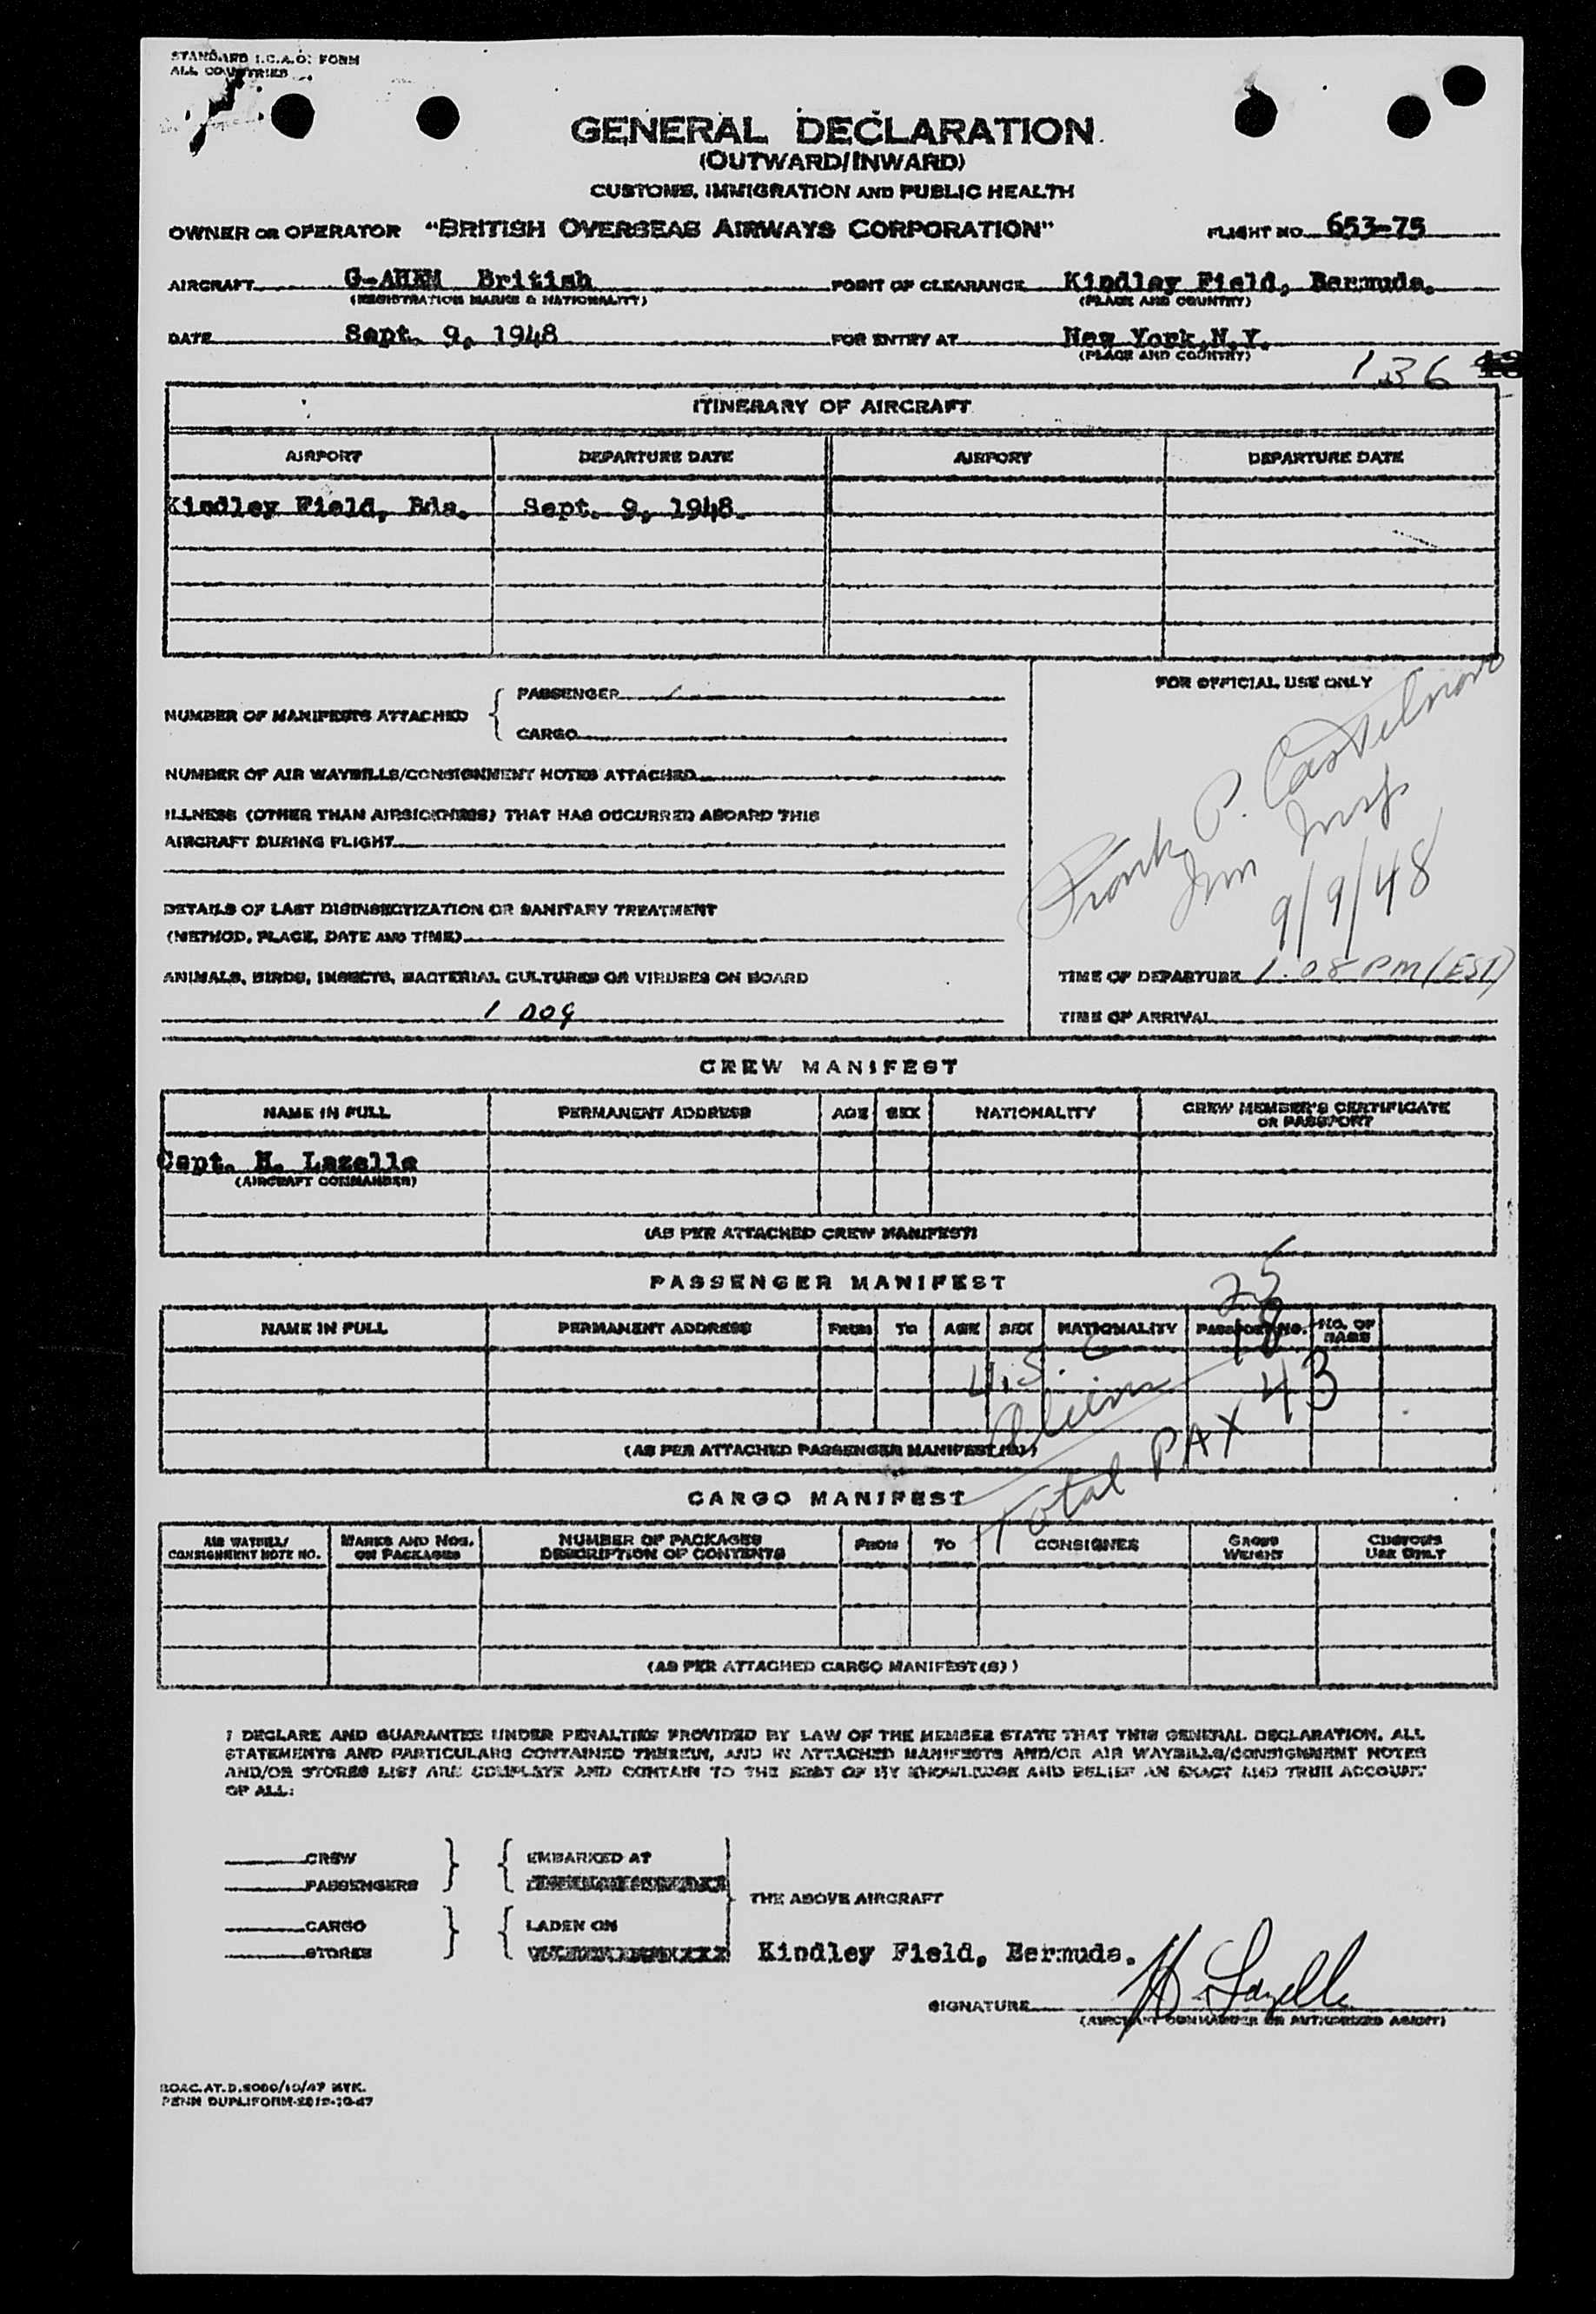 STANDARD I.C.A.O. FORM
ALL COUNTRIES
GENERAL DECLARATION
(OUTWARD/INWARD)
CUSTOMS, IMMIGRATION AND PUBLIC HEALTH
OWNER OR OPERATOR "BRITISH OVERSEAS AIRWAYS CORPORATION" FLIGHT NO. 653-75
AIRCRAFT G-AHEM British POINT OF CLEARANCE Kindley Field, Bermuda.
(REGISTRATION MARKS & NATIONALITY) (PLACE AND COUNTRY)
DATE Sept. 9, 1948 FOR ENTRY AT New York, N.Y.
(PLACE AND COUNTRY)
136
ITINERARY OF AIRCRAFT
AIRPORT DEPARTURE DATE AIRPORT DEPARTURE DATE
Kindley Field, Bda. Sept. 9, 1948.
NUMBER OF MANIFESTS ATTACHED { PASSENGER 1
CARGO
FOR OFFICIAL USE ONLY
NUMBER OF AIR WAYBILLS/CONSIGNMENT NOTES ATTACHED
ILLNESS (OTHER THAN AIRSICKNESS) THAT HAS OCCURRED ABOARD THIS
AIRCRAFT DURING FLIGHT
Frank P.
Imm Insp
9/9/48
DETAILS OF LAST DISINSECTIZATION OR SANITARY TREATMENT
(METHOD, PLACE, DATE AND TIME)
ANIMALS, BIRDS, INSECTS, BACTERIAL CULTURES OR VIRUSES ON BOARD
1 DOG
TIME OF DEPARTURE 1:08 PM (EST)
TIME OF ARRIVAL
CREW MANIFEST
NAME IN FULL PERMANENT ADDRESS AGE SEX NATIONALITY CREW MEMBER'S CERTIFICATE OR PASSPORT
Capt. H. Lazelle
(AIRCRAFT COMMANDER)
(AS PER ATTACHED CREW MANIFEST)
PASSENGER MANIFEST
NAME IN FULL PERMANENT ADDRESS FROM TO AGE SEX NATIONALITY PASSPORT NO. NO. OF BAGS
U.S. C 25
Aliens 18
Total PAX 43
(AS PER ATTACHED PASSENGER MANIFEST(S))
CARGO MANIFEST
AIR WAYBILL/ CONSIGNMENT NOTE NO. MARKS AND NOS. ON PACKAGES NUMBER OF PACKAGES DESCRIPTION OF CONTENTS FROM TO CONSIGNEE GROSS WEIGHT CUSTOMS USE ONLY
(AS PER ATTACHED CARGO MANIFEST(S))
I DECLARE AND GUARANTEE UNDER PENALTIES PROVIDED BY LAW OF THE MEMBER STATE THAT THIS GENERAL DECLARATION, ALL
STATEMENTS AND PARTICULARS CONTAINED THEREIN, AND IN ATTACHED MANIFESTS AND/OR AIR WAYBILLS/CONSIGNMENT NOTES
AND/OR STORES LIST ARE COMPLETE AND CONTAIN TO THE BEST OF MY KNOWLEDGE AND BELIEF AN EXACT AND TRUE ACCOUNT
OF ALL:
CREW } { EMBARKED AT
PASSENGERS
THE ABOVE AIRCRAFT
CARGO } { LADEN ON
STORES
Kindley Field, Bermuda.
SIGNATURE H. Lazelle
(AIRCRAFT COMMANDER OR AUTHORIZED AGENT)
BOAC.AT.D.5000/10/47 NYK.